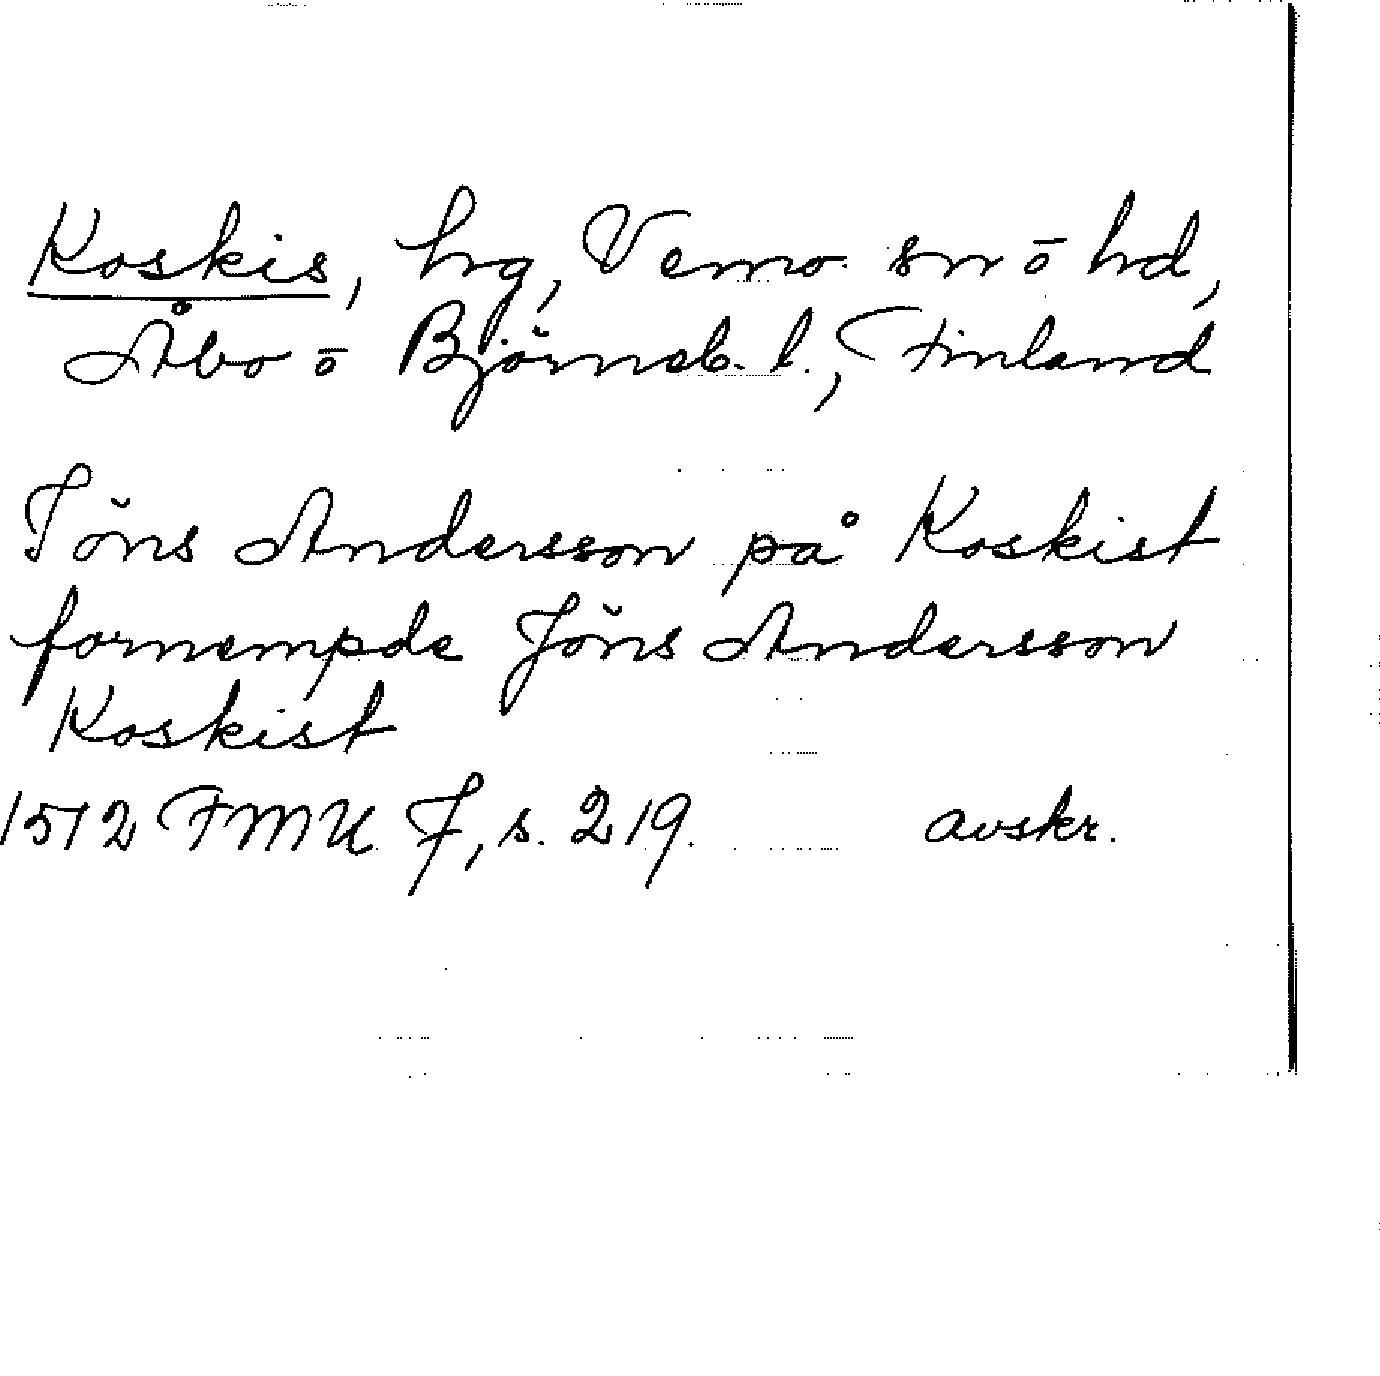 Koskis, hg, Vemo sn ō hd,
Åbo ō Björneb. l., Finland
Jöns Andersson på Koskist
fornempde Jöns Andersson
Koskist
1512 FMU 7, s. 219. avskr.